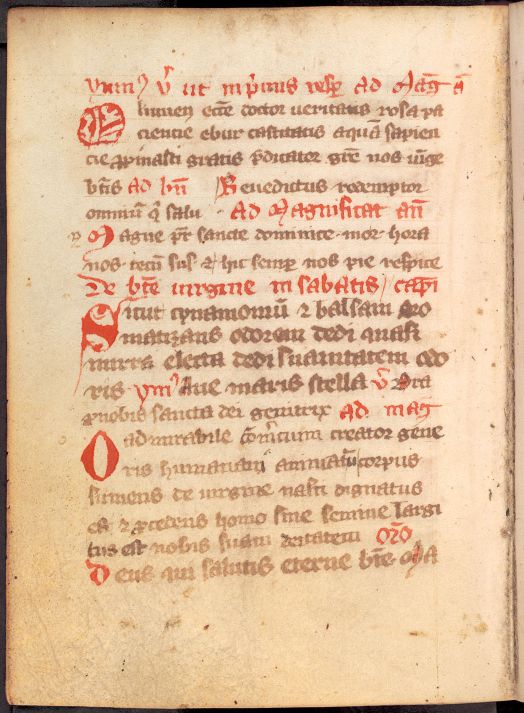 ympn⁹ v̄ ut in p̄mis vesp̄ Ad Mag̃ ā
O lumen eccẽ doctor veritatis rosa pa
ciencie ebur castitatis aquã sapien
cie ꝓpinasti gratis p̄dicator gr̃e nos iũge
bt̃is Ad bñ Benedictus redemptor
omniũ q̇ salu Ad Magnificat añ
Magne pr̃ sancte dominice mor hora
nos tecũ sus ⁊ hic semꝑ nos pie respice
De bt̃e virgine in sabatis capi
Sicut cynamomũ ⁊ balsam aro
matizans odorem dedi quasi
mirra electa dedi suavitatem odo
ris ym⁹ Aue maris stella v̄ Ora
ꝓ nobis sancta dei genitrix ad mag̃
O admirabile com̃cium creator gene
ris humani animatũ corpus
sumens de virgine nasci dignatus
est ⁊ ꝓcedens homo sine semine largi
tus est nobis suam deitatem orõ
Deus qui salutis eterne bt̃e Ma